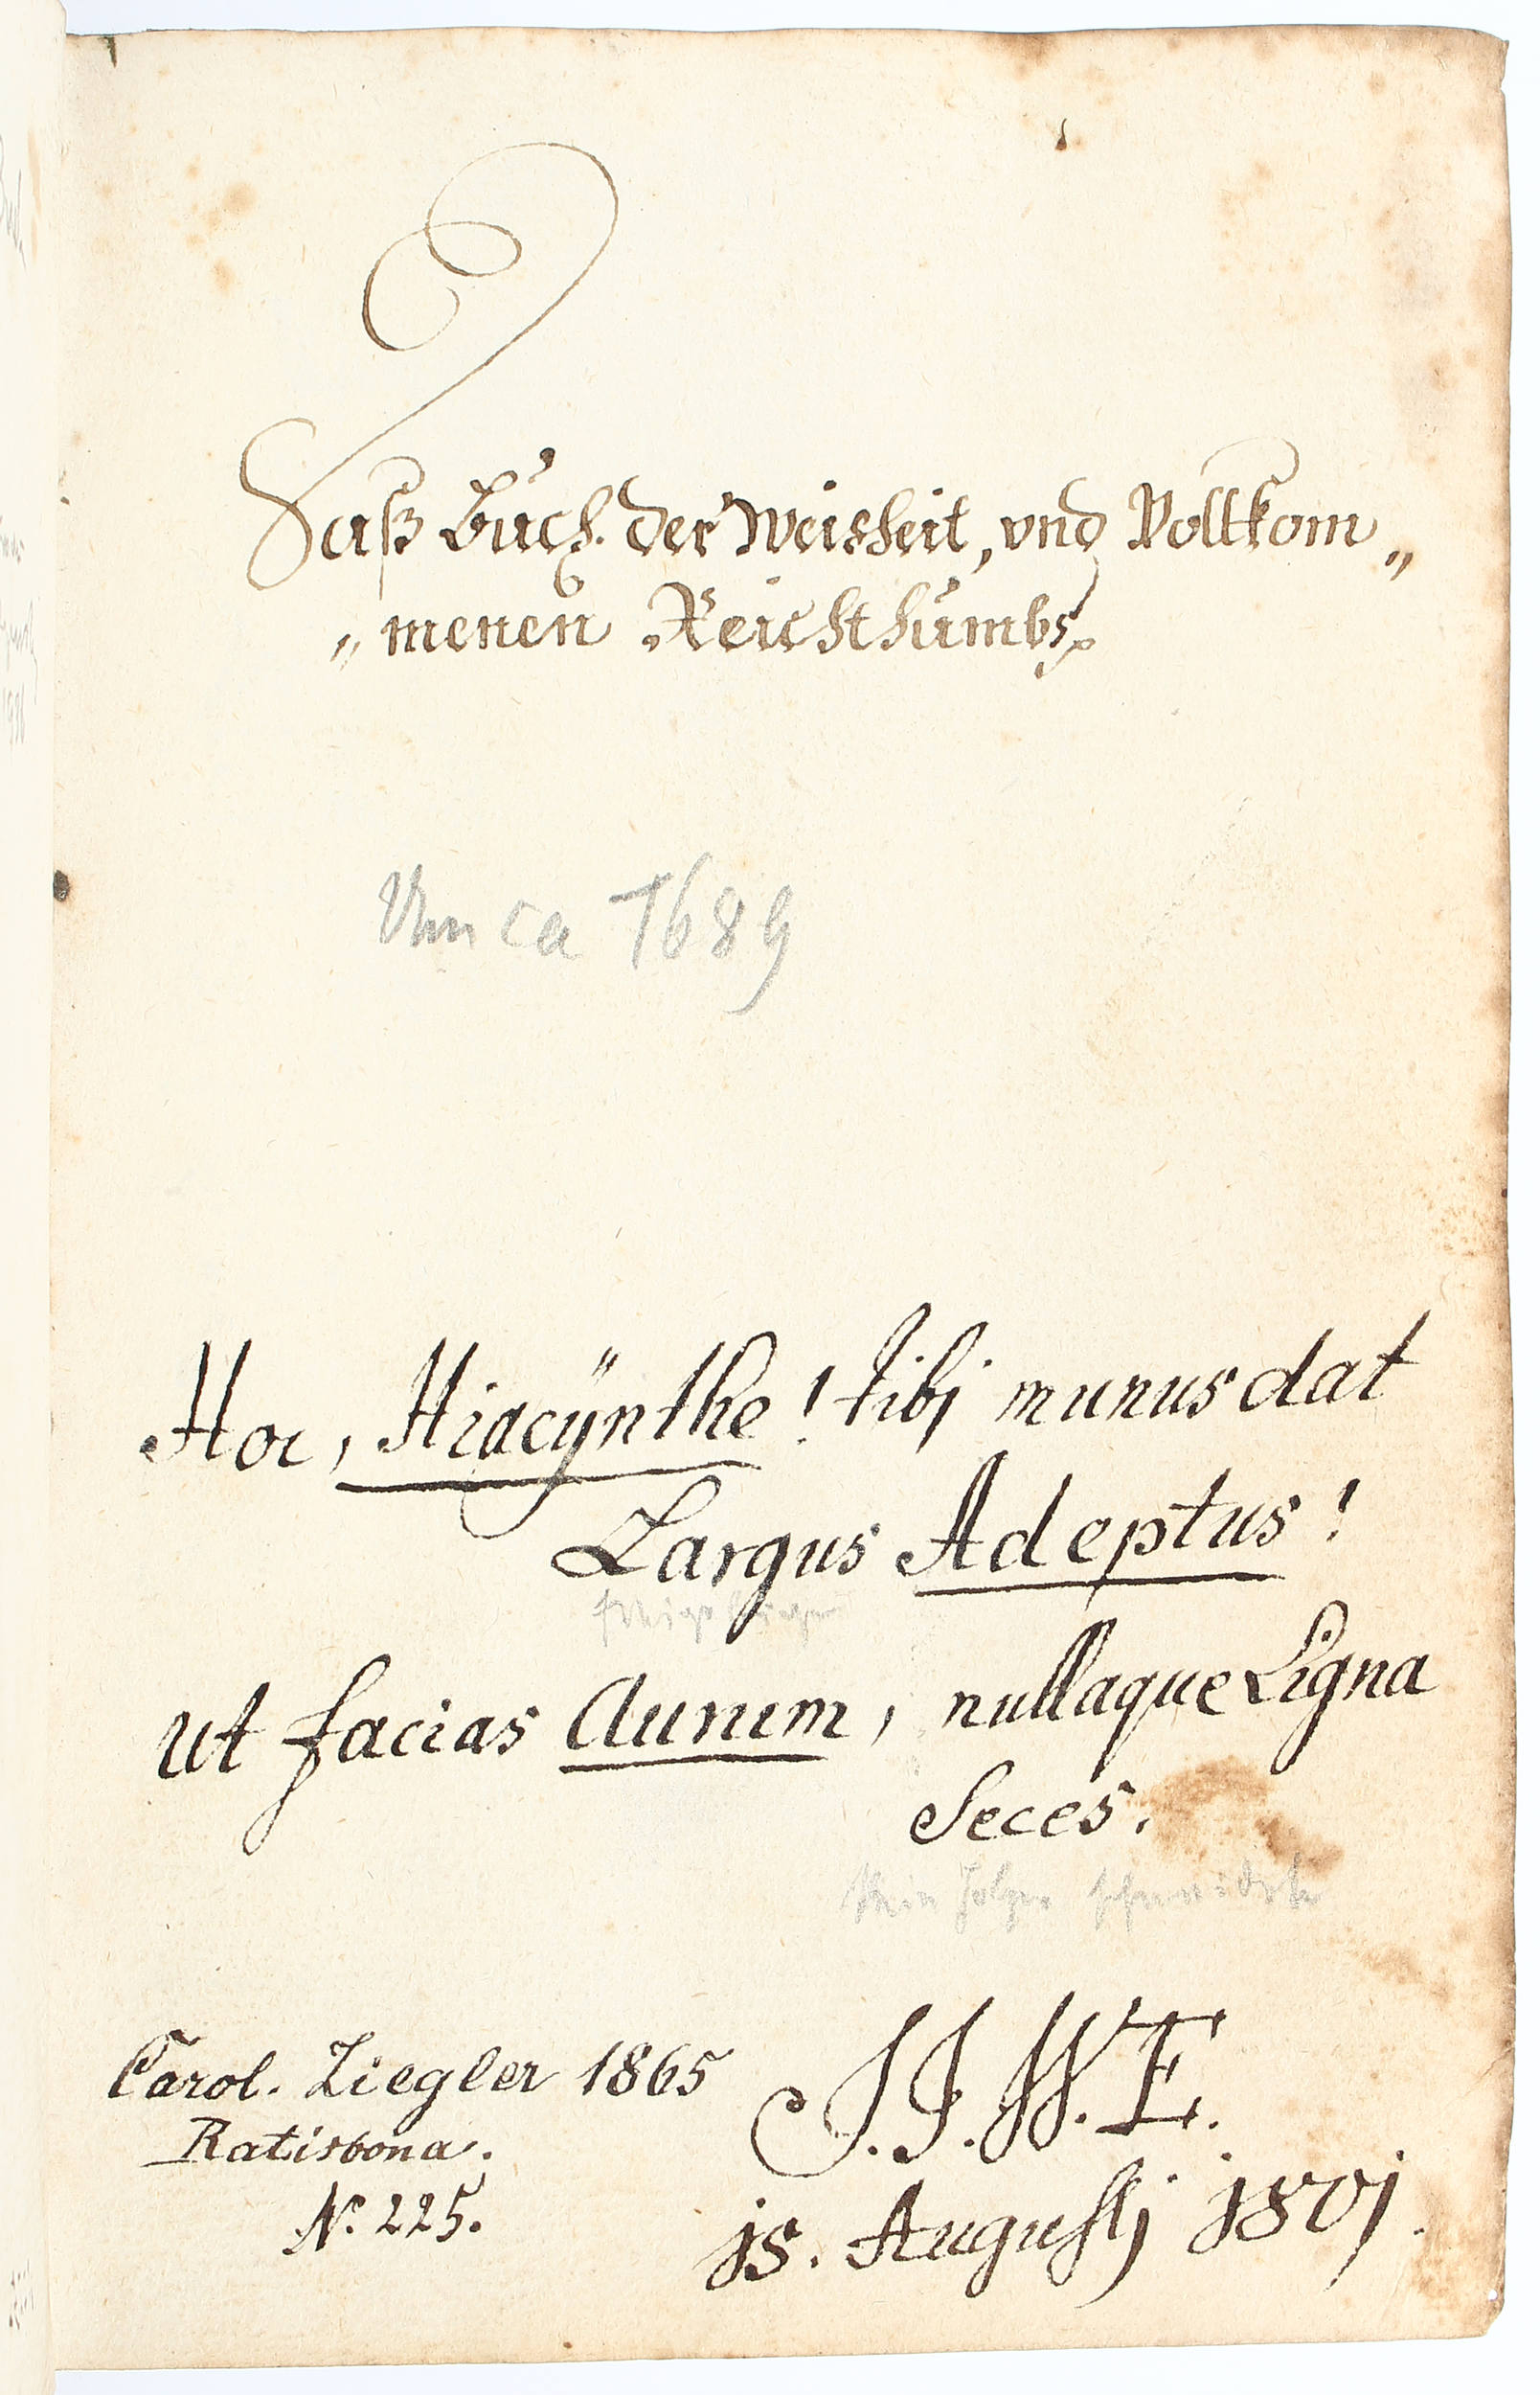 Daß Buch der Weisheit, vnd Vollkom„
„menen Reichthumbs
ca 1689
Hoc, Hiacÿnthe! tibj munus dat
Largus Adeptus!
ut facias Aurum, nullaque Ligna
Seces.
Carol. Ziegler 1865
Ratisbona.
N. 225.
J. J. W. E.
js. Augustj j80j.